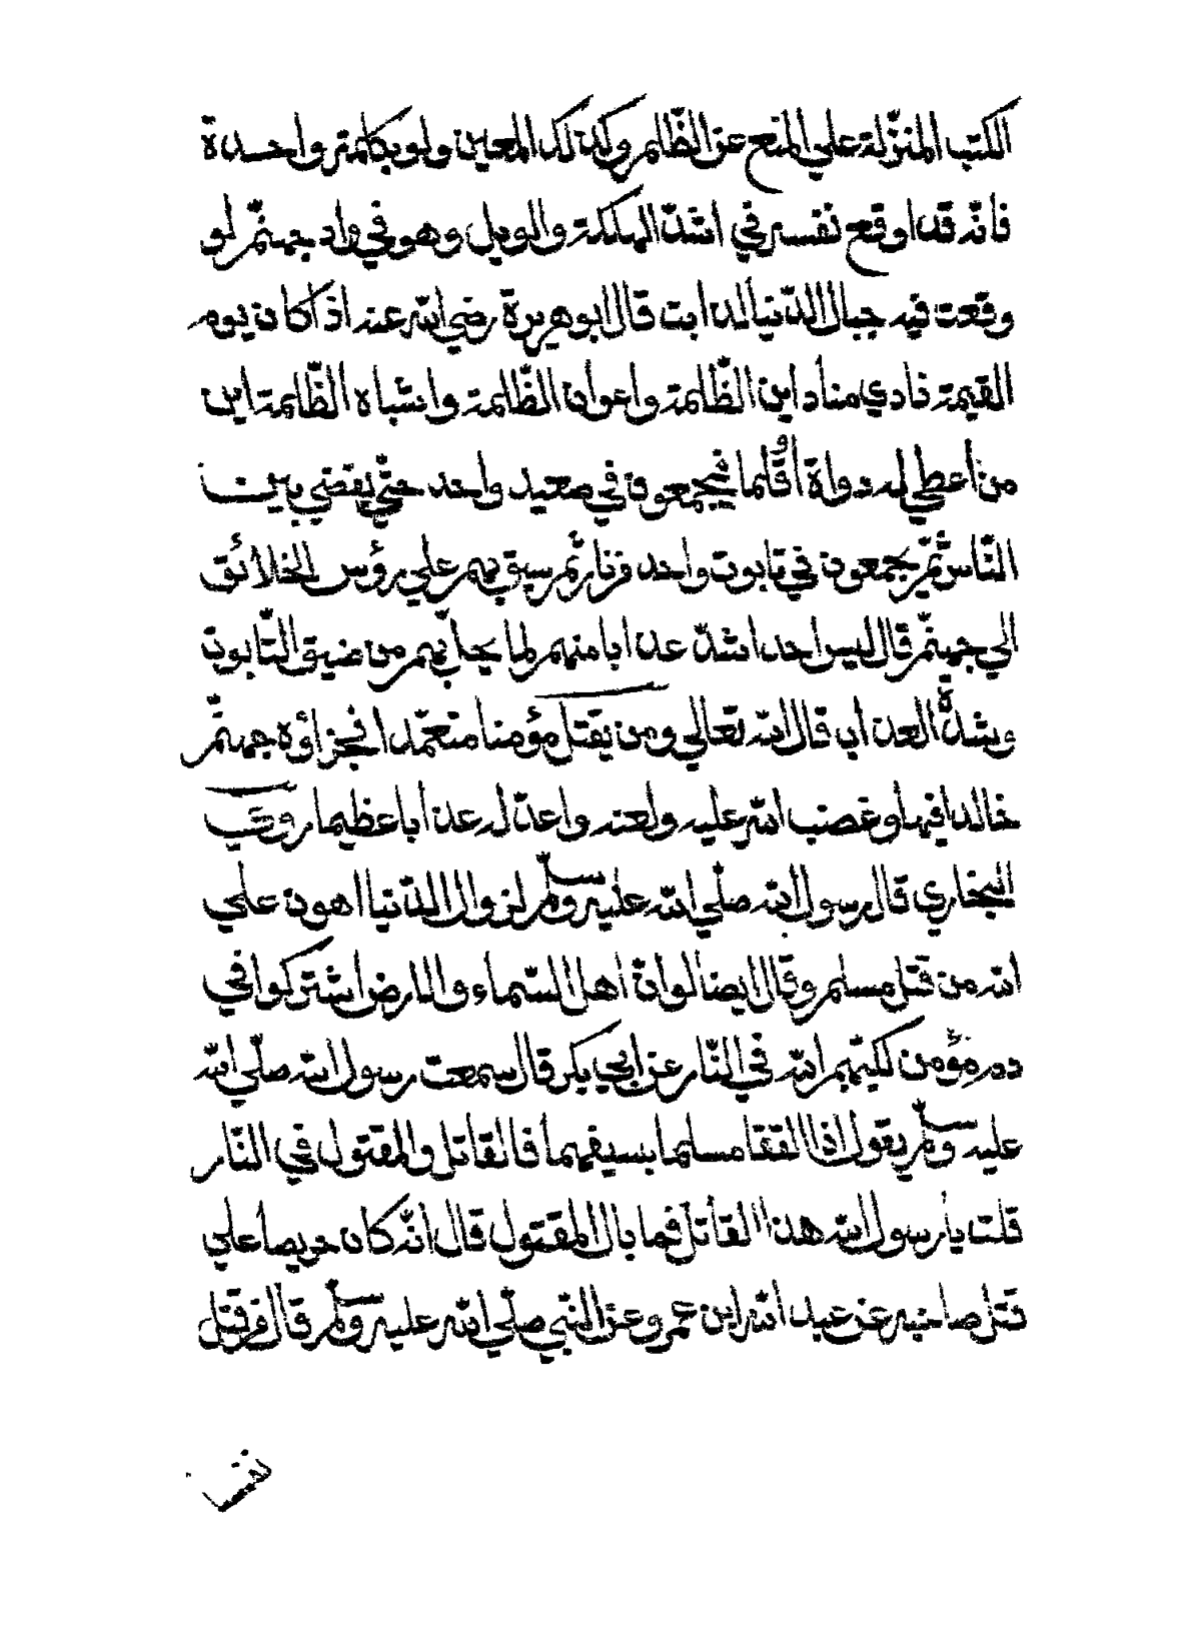 الكتب المنزّلة علي المنع عن الظّالم وكذلك المعين ولو بكلمة واحدة
فانّه قد اوقع نفسه في اشدّ الهلكة والويل وهو في واد جهنّم لو
وقعت فيه جبال الدّنيا لذابت قال ابو هريرة رضي الله عنه اذا كان يوم
القيمة نادي مناد اين الظّالمة واعوان الظّالمة واشباه الظّالمة اين
من اعطي له دواة او قلما فيجمعون في صعيد واحد حتّي يقضي بين
النّاس ثمّ يجمعون في تابوت واحد من نار ثم سيق بهم علي رؤس الخلائق
الي جهنّم قال ليس احد اشدّ عذابا منهم لما يجابهم من ضيق التّابوت
وشدّة العذاب قال الله تعالي ومن يقتل مؤمنا متعمّدا فجزاؤه جهنّم
خالدا فيها وغضب الله عليه ولعنه واعدّ له عذابا عظيما روي
البخاري قال رسول الله صلّي الله عليه وسلم لزوال الدّنيا اهون علي
الله من قتل مسلم وقال ايضا لو انّ اهل السّماء والارض اشتركوا في
دم مؤمن لكبّهم الله في النّار عن ابي بكر قال سمعت رسول الله صلّي الله
عليه وسلم يقول اذا التقا مسلما بسيفهما فالقاتل والمقتول في النّار
قلت يا رسول الله هذا القاتل فما بال المقتول قال انّه كان حريصا علي
قتل صاحبه عن عبد الله ابن عمر وعن النّبي صلّي الله عليه وسلم قال من قتل
نفسا